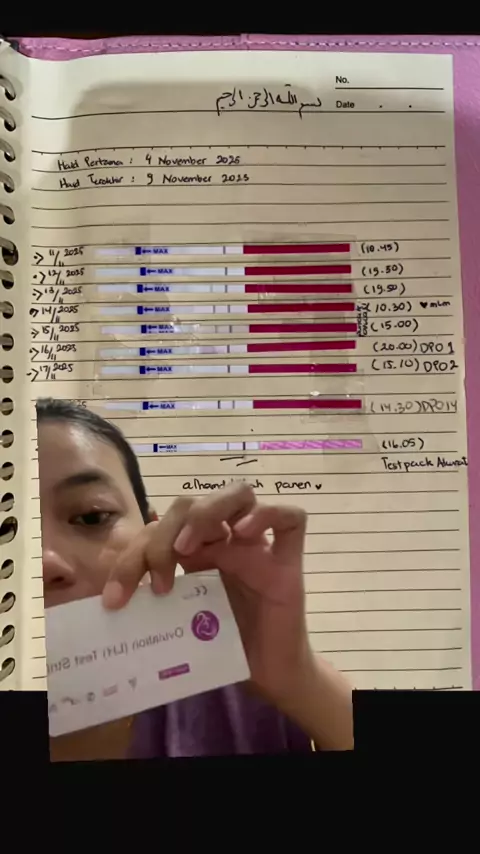 بسم الله الرحمن الرحيم
No.
Date . .
Haid Pertama : 4 November 2025
Haid Terakhir : 9 November 2025
-> 11/11 2025 MAX (10.45)
-> 12/11 2025 MAX (15.50)
-> 13/11 2025 MAX (15.50)
-> 14/11 2025 MAX (10.30) ♥
-> 15/11 2025 MAX (15.00)
-> 16/11 2025 MAX (20.00) DPO 1
-> 17/11 2025 MAX (15.10) DPO 2
2025 MAX (14.30) DPO 14
MAX (16.05)
Testpack Akurat
panen ♥
CE
Ovulation (LH) Test Strip